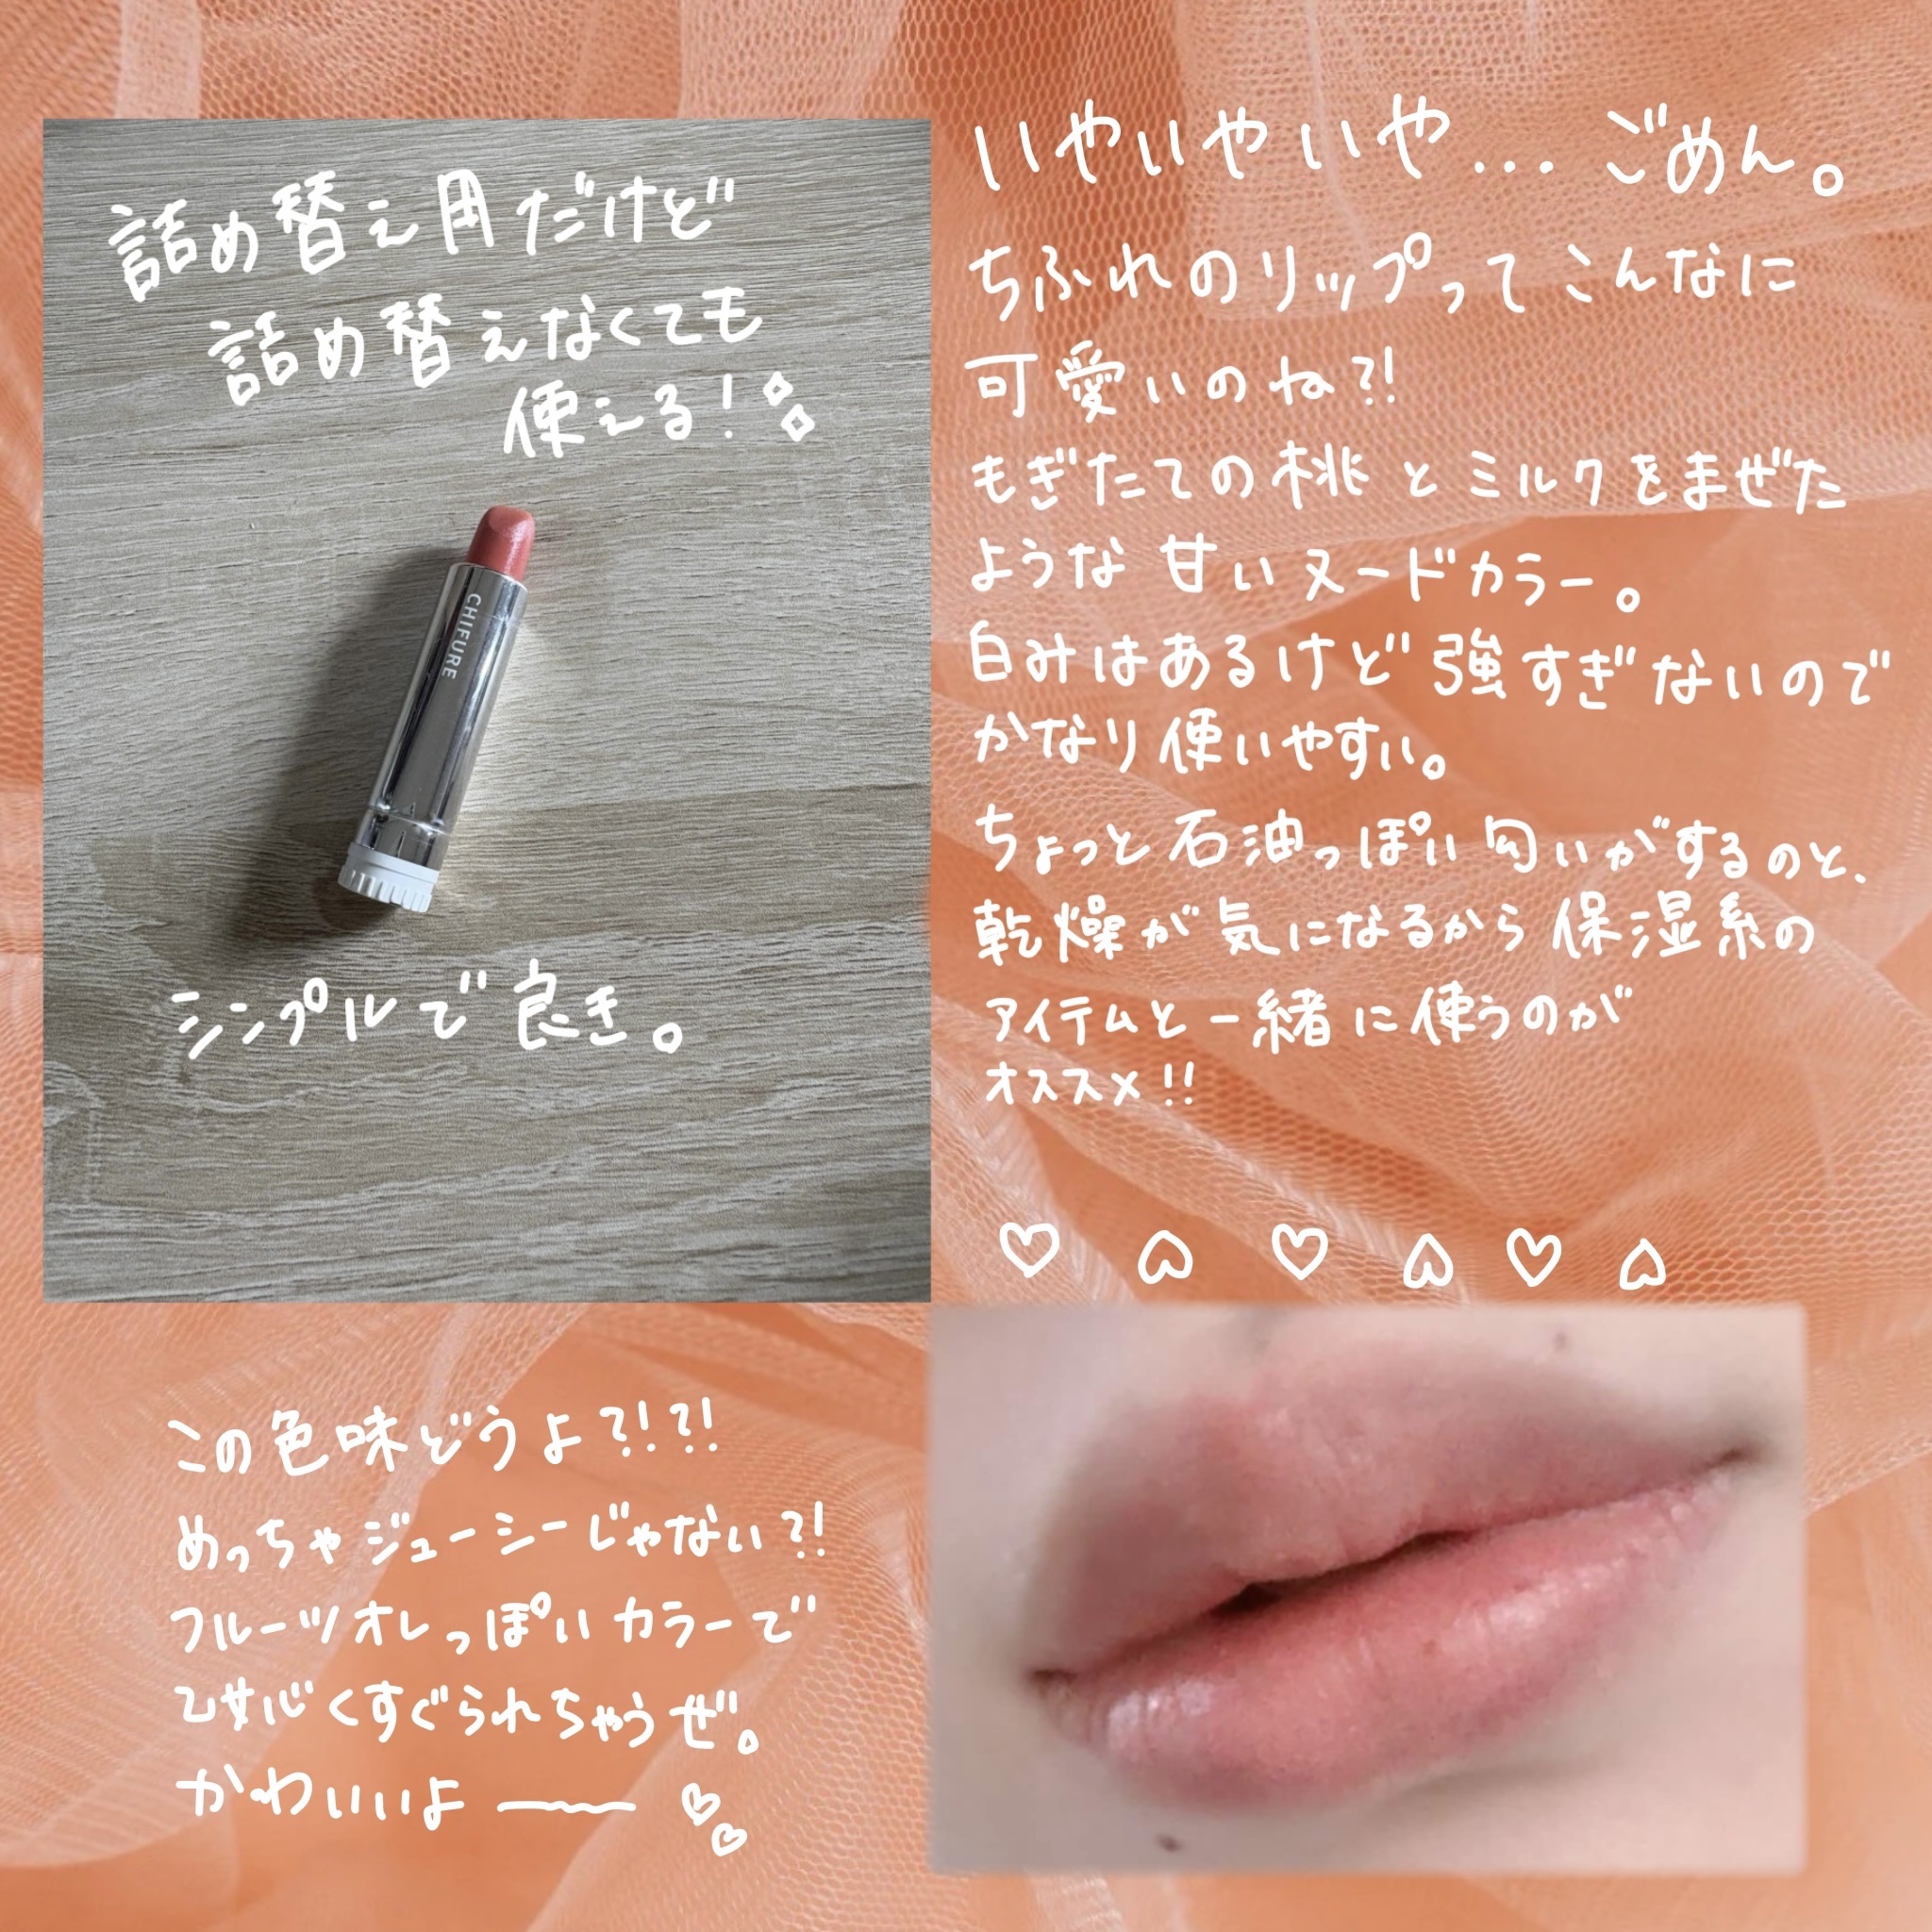 詰め替え用だけど
詰め替えなくても
使える!
CHIFURE
シンプルで良き。
いやいやいや...ごめん。
ちふれのリップってこんなに
可愛いのね?!
もぎたての桃とミルクをまぜた
ような甘いヌードカラー。
白みはあるけど強すぎないので
かなり使いやすい。
ちょっと石油っぽい匂いがするのと、
乾燥が気になるから保湿系の
アイテムと一緒に使うのが
オススメ!!
この色味どうよ?!?!
めっちゃジューシーじゃない?!
フルーツオレっぽいカラーで
乙女心くすぐられちゃうぜ。
かわいいよー